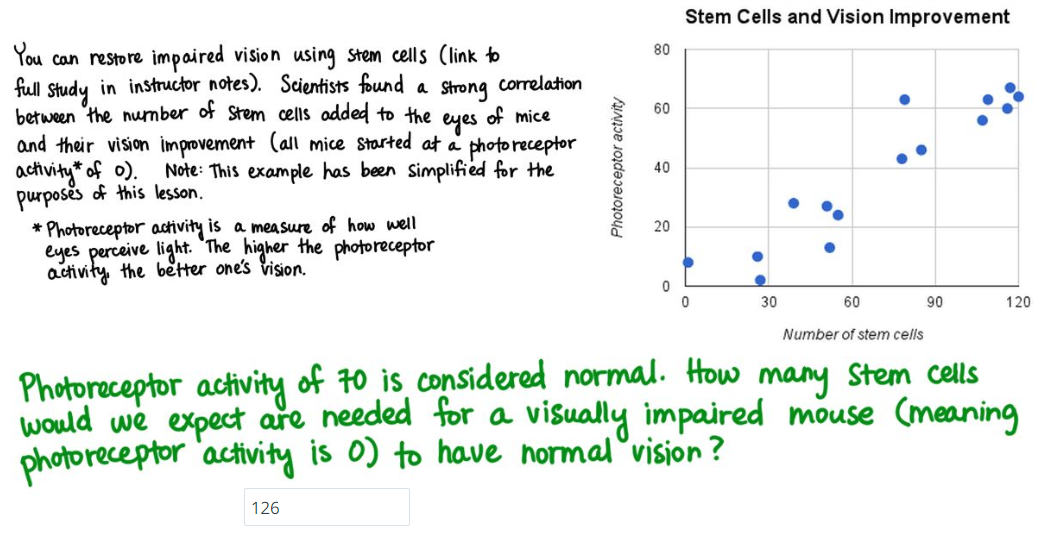 You can restore impaired vision using stem cells (link to
full study in instructor notes). Scientists found a strong correlation
between the number of stem cells added to the eyes of mice
and their vision improvement (all mice started at a photoreceptor
activity* of 0). Note: This example has been simplified for the
purposes of this lesson.
* Photoreceptor activity is a measure of how well
eyes perceive light. The higher the photoreceptor
activity, the better one's vision.
Stem Cells and Vision Improvement
Photoreceptor activity
80
60
40
20
0
0 30 60 90 120
Number of stem cells
Photoreceptor activity of 70 is considered normal. How many stem cells
would we expect are needed for a visually impaired mouse (meaning
photoreceptor activity is 0) to have normal vision?
126